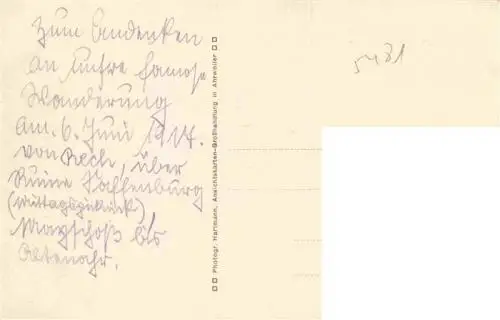 Zum Andenken
an unsre famose
Wanderung
am 6. Juni 1917.
von Rech, über
Ruine Saffenburg
(Mittagspicknick)
Mayschoß bis
Altenahr.
Photogr. Hartmann, Ansichtskarten-Großhandlung in Ahrweiler
5481